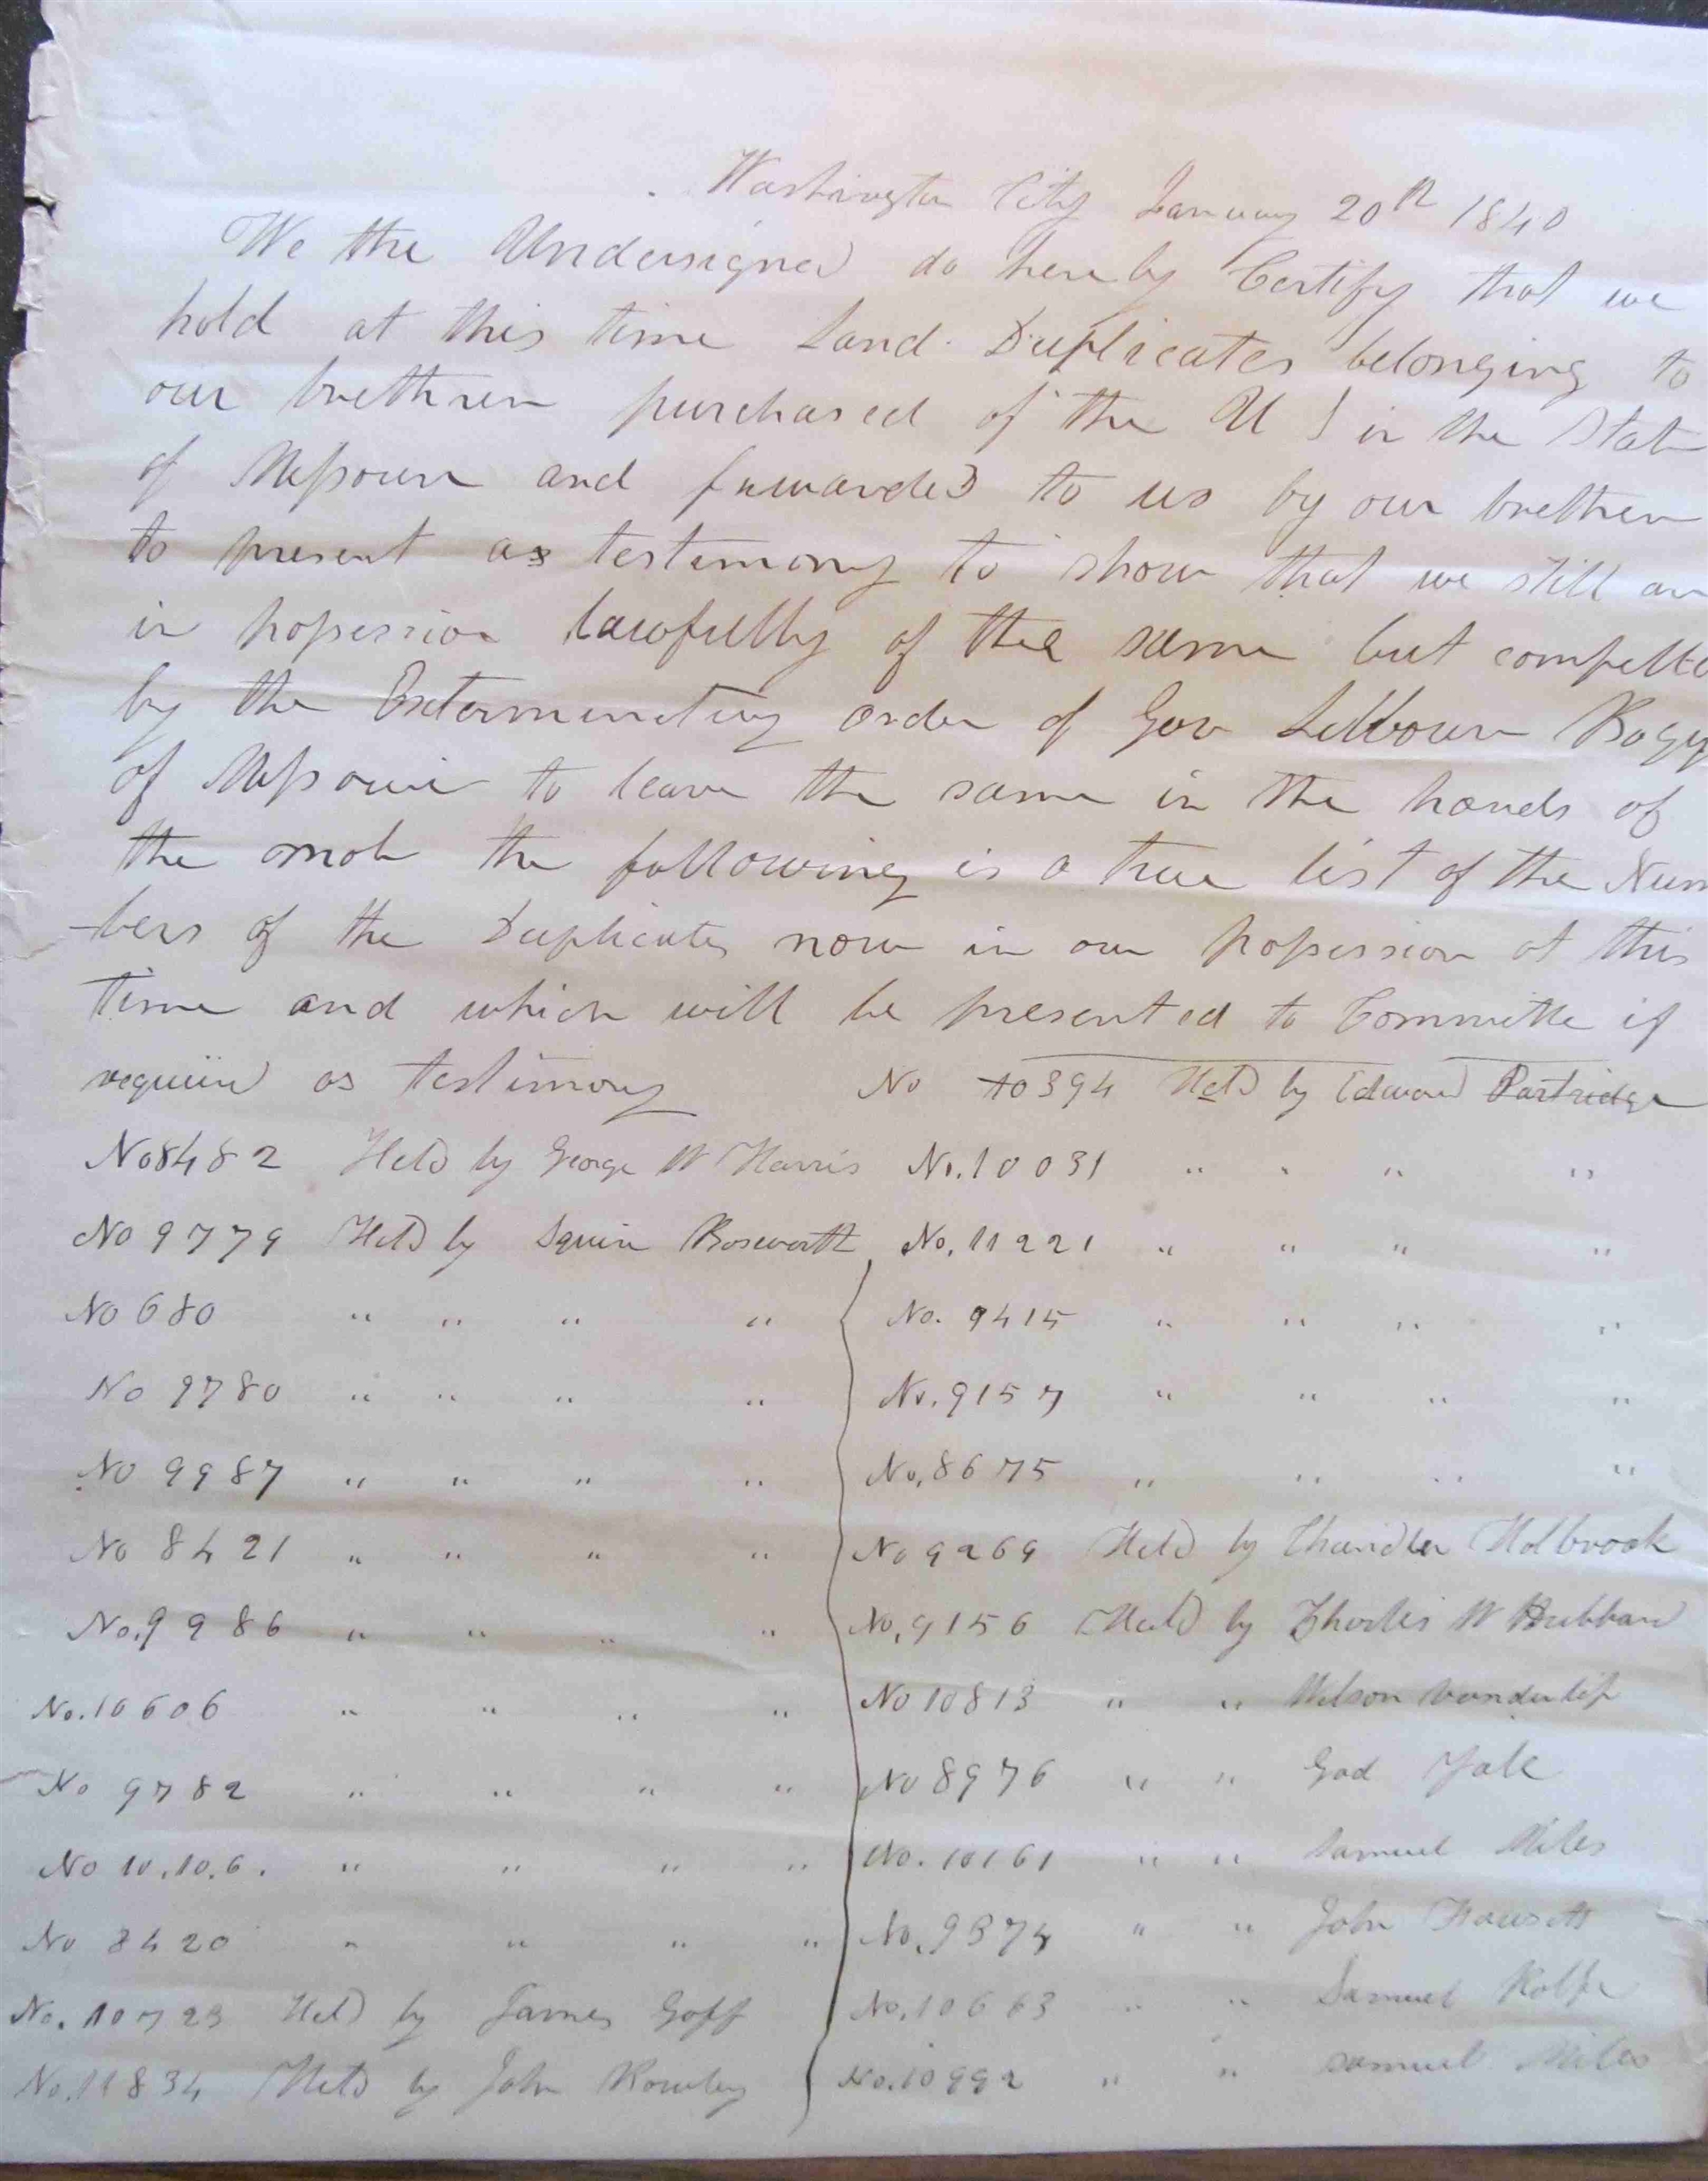 Washington City January 20th 1840
We the Undersigned do hereby Certify that we
hold at this time Land Duplicates belonging to
our brethren purchased of the U S in the State
of Missouri and forwarded to us by our brethren
to present as testimony to show that we still are
in possession lawfully of the same but compelled
by the Exterminating order of Gov Lilbourn Bogg
of Missouri to leave the same in the hands of
the mob the following is a true list of the Num
-bers of the Duplicates now in our possession at this
time and which will be presented to Committe if
required as testimony No 10394 Held by Edward Partridge
No 8482 Held by George W Harris No. 10031 " " " "
No 9779 Held by Squire Bosworth No. 11221 " " " "
No 680 " " " " No. 9415 " " " "
No 9780 " " " " No. 9157 " " " "
No 9987 " " " " No. 8675 " " " "
No 8421 " " " " No 9269 Held by Chandler Holbrook
No. 9986 " " " " No. 9156 Held by Charles W Hubbard
No. 10606 " " " " No 10813 " " Wilson Vanderlip
No 9782 " " " " No 8976 " " Gad Yale
No 10.10.6. " " " " No. 10161 " " Samuel Miles
No 8420 " " " " No. 9374 " " John Fausett
No. 10723 Held by James Goff No. 10663 " " Samuel Rolfe
No. 11834 Held by John Rowley No. 10992 " " Samuel Miles